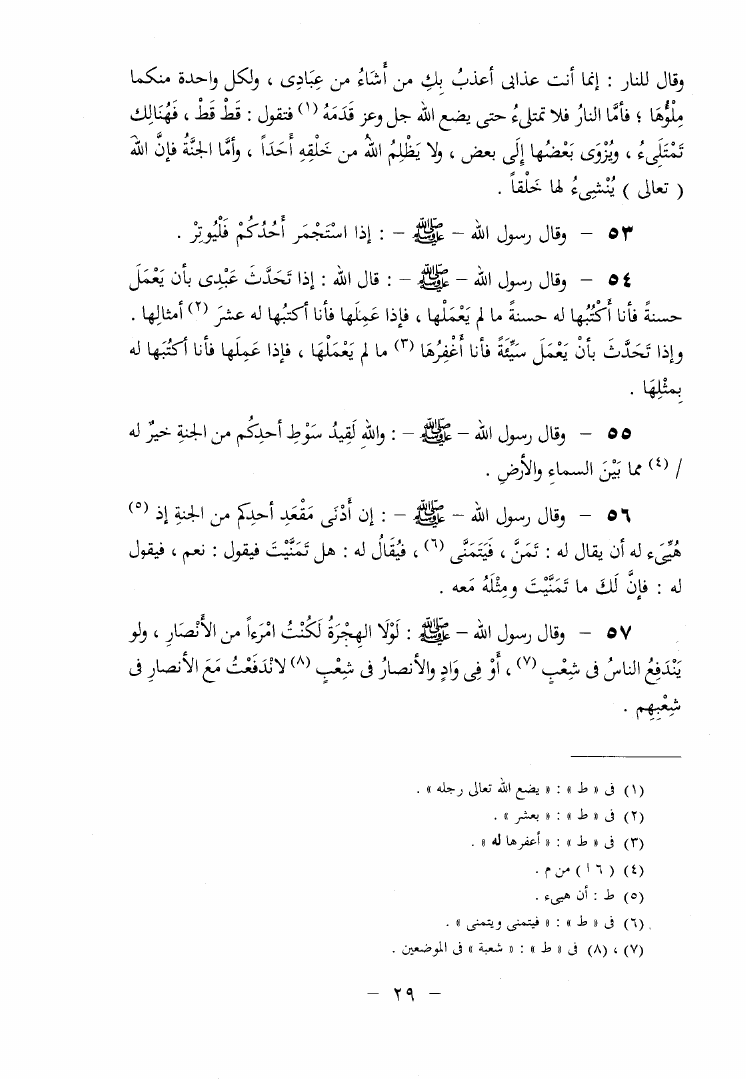 وقال للنار : إنما أنت عذابى أعذبُ بِكِ من أَشَاءُ من عِبَادِى ، ولكل واحدة منكما
مِلْؤُهَا ؛ فأمَّا النارُ فلا تمتلىءُ حتى يضع الله جل وعز قَدَمَهُ (١) فتقول : قَطْ قَطْ ، فَهُنَالِك
تَمْتَلِىءُ ، ويُزْوَى بَعْضُها إِلَى بعض ، ولا يَظْلِمُ اللهُ من خَلْقِهِ أَحَدَاً ، وأمَّا الجنَّةُ فإنَّ اللهَ
( تعالى ) يُنْشِىءُ لها خَلْقاً .
٥٣ – وقال رسول الله – ﷺ – : إذا اسْتَجْمَر أَحُدُكُمْ فَلْيُوتِرْ .
٥٤ – وقال رسول الله – ﷺ – : قال الله : إذا تَحَدَّثَ عَبْدِى بأن يَعْمَلَ
حسنةً فأنا أَكْتُبُها له حسنةً ما لم يَعْمَلْها ، فإذا عَمِلَها فأنا أكتبُها له عشرَ (٢) أمثالِها .
وإذا تَحَدَّثَ بأنْ يَعْمَل سَيِّئَةً فأنا أغْفِرُهَا (٣) ما لم يَعْمَلْهَا ، فإذا عَمِلَها فأنا أكتُبَها له
بِمثْلِهَا .
٥٥ – وقال رسول الله – ﷺ – : واللهِ لَقِيدُ سَوْطِ أحدِكُم من الجنةِ خيرٌ له
/ (٤) مما بَيْنَ السماءِ والأرضِ .
٥٦ – وقال رسول الله – ﷺ – : إن أَدْنَى مَقْعَدِ أحدِكم من الجنةِ إذ (٥)
هُيِّىَء له أن يقال له : تَمَنَّ ، فَيَتَمَنَّى (٦) ، فيُقَالُ له : هل تَمَنَّيْتَ فيقول : نعم ، فيقول
له : فإنَّ لَكَ ما تَمَنَّيْتَ ومِثْلَهُ مَعه .
٥٧ – وقال رسول الله – ﷺ : لَوْلَا الهِجْرَةُ لَكُنْتُ امْرَءاً من الأَنْصَارِ ، ولو
يَنْدَفِعُ الناسُ فى شِعْبٍ (٧) ، أَوْ فِى وَادٍ والأنصارُ فى شِعْبٍ (٨) لانْدَفَعْتُ مَعَ الأنصارِ فى
شِعْبِهِم .
(١) فى « ط » : « يضع الله تعالى رجله » .
(٢) فى « ط » : « بعشر » .
(٣) فى « ط » : « أغفرها له » .
(٤) ( ١٦ ) من م .
(٥) ط : أن هيىء .
(٦) فى « ط » : « فيتمنى ويتمنى » .
(٧) ، (٨) فى « ط » : « شعبة » فى الموضعين .
– ٢٩ –